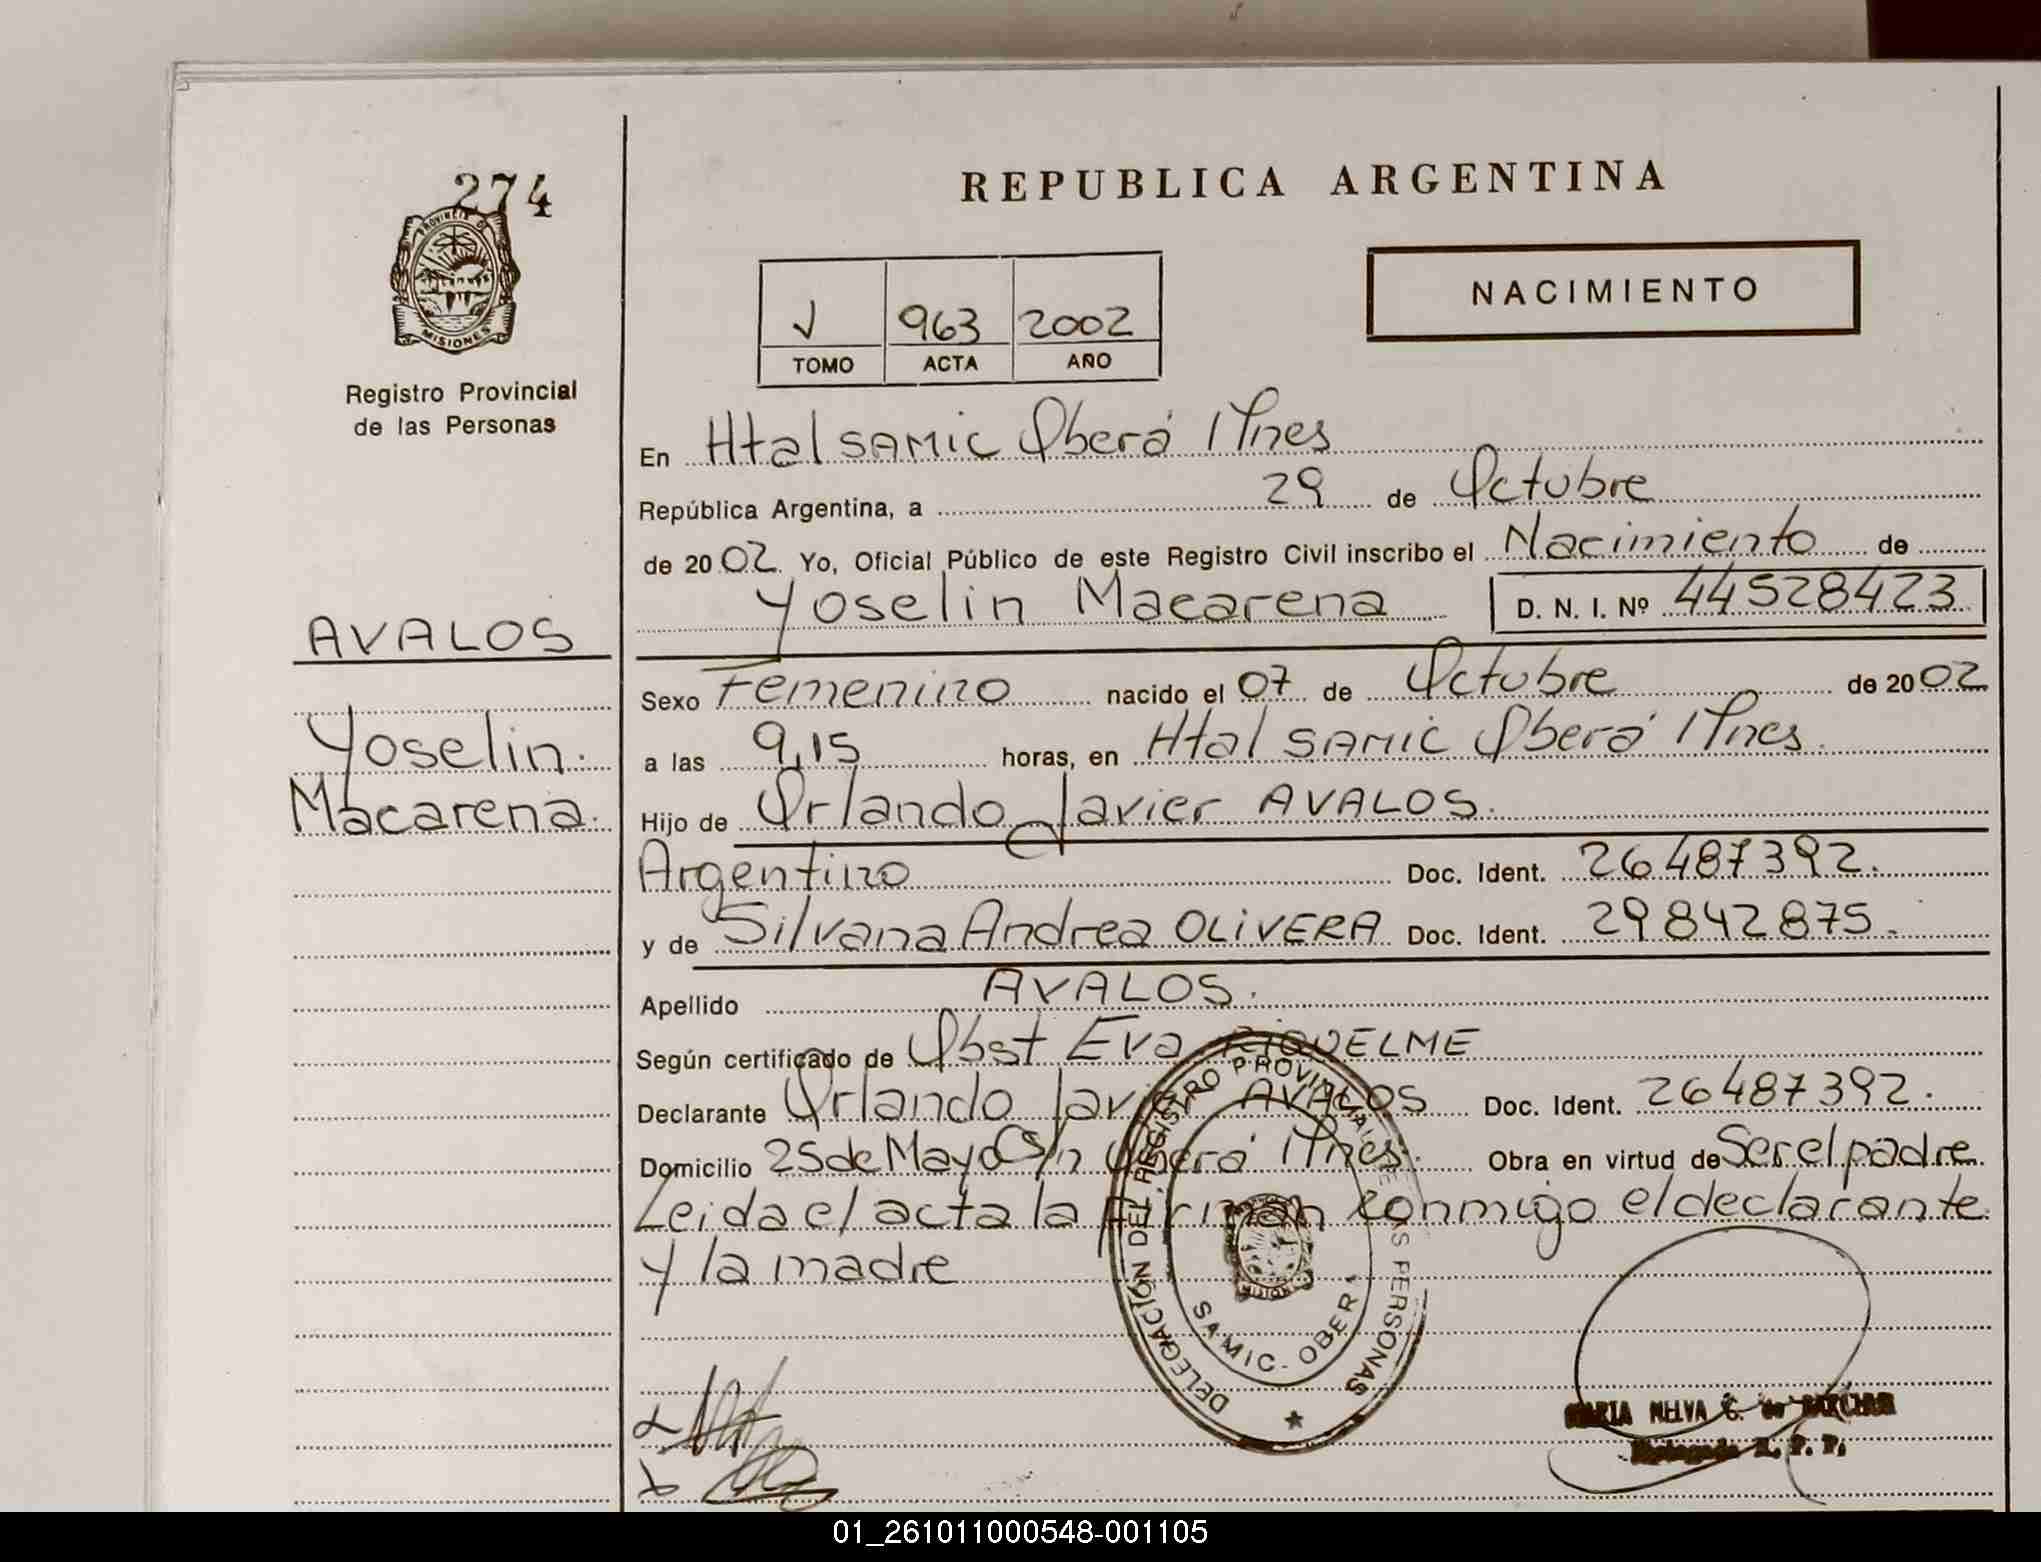 274
PROVINCIA DE
MISIONES
Registro Provincial
de las Personas
AVALOS
Yoselin.
Macarena.
REPUBLICA ARGENTINA
V 963 2002
TOMO ACTA AÑO
NACIMIENTO
En Htal SAMIC Oberá Mnes
República Argentina, a 29 de Octubre
de 2002. Yo, Oficial Público de este Registro Civil inscribo el Nacimiento de
Yoselin Macarena D. N. I. Nº 44528423
Sexo Femenino nacido el 07 de Octubre de 2002
a las 9,15 horas, en Htal SAMIC Oberá Mnes.
Hijo de Orlando Javier AVALOS.
Argentino Doc. Ident. 26487392.
y de Silvana Andrea OLIVERA Doc. Ident. 29842875.
Apellido AVALOS.
Según certificado de Obst Eva RIQUELME
Declarante Orlando Javier AVALOS Doc. Ident. 26487392.
Domicilio 25 de Mayo S/n Oberá Mnes. Obra en virtud de Ser el padre.
Leida el acta la firman conmigo el declarante
y la madre
DELEGACIÓN DEL REGISTRO PROVINCIAL DE LAS PERSONAS
SAMIC - OBERA
MARIA NELVA C. de
Delegada R. P. P.
01_261011000548-001105